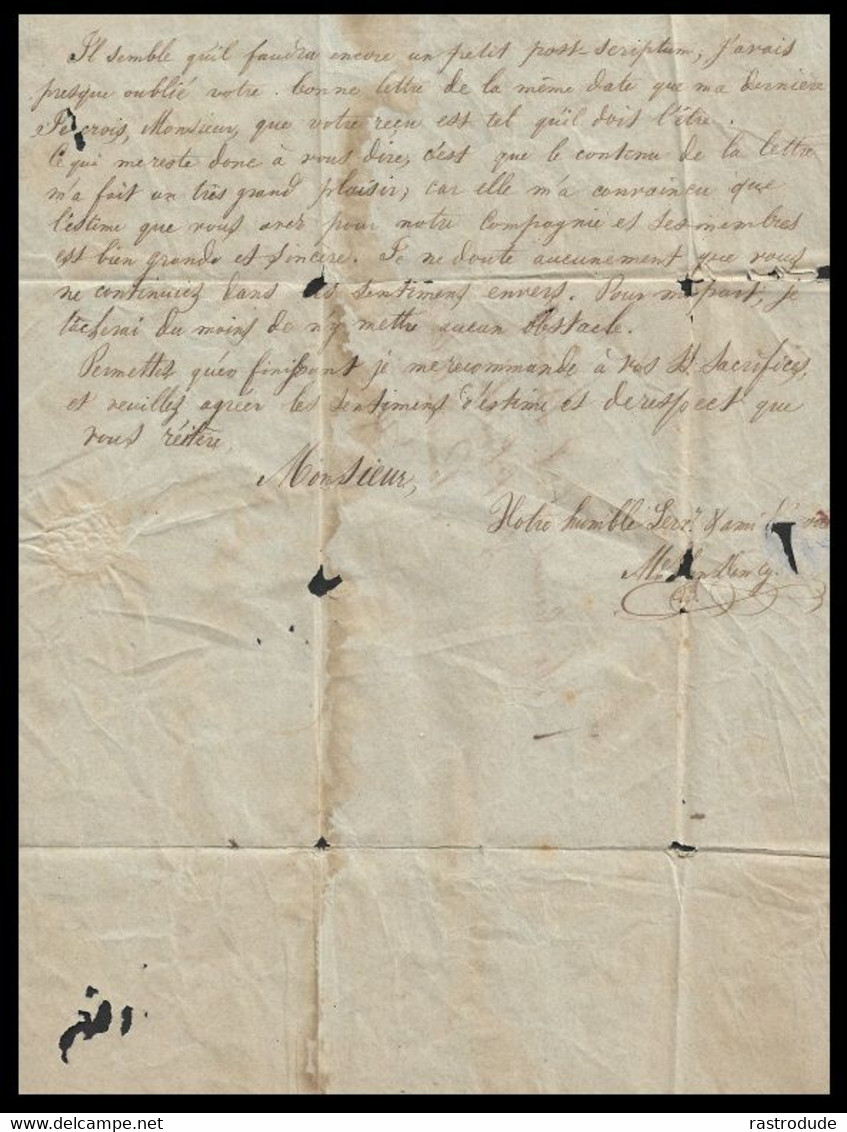 Il semble qu'il faudra encore un petit post-scriptum, j'avais
presque oublié votre bonne lettre de la même date que ma dernière
Je crois, Monsieur, que votre reçu est tel qu'il doit l'être.
Ce qui me reste donc à vous dire, c'est que le contenu de la lettre
m'a fait un très grand plaisir; car elle m'a convaincu que
l'estime que vous avez pour notre Compagnie et ses membres
est bien grande et sincère. Je ne doute aucunement que vous
ne continuiez dans ces sentimens envers. Pour ma part, je
tâcherai du moins de n'y mettre aucun obstacle.
Permettez qu'en finissant je me recommande à vos St. Sacrifices,
et veuillez agréer les sentimens d'estime et de respect que
vous réitère,
Monsieur,
Votre humble Serv. & ami
delcampe.net
rastrodude